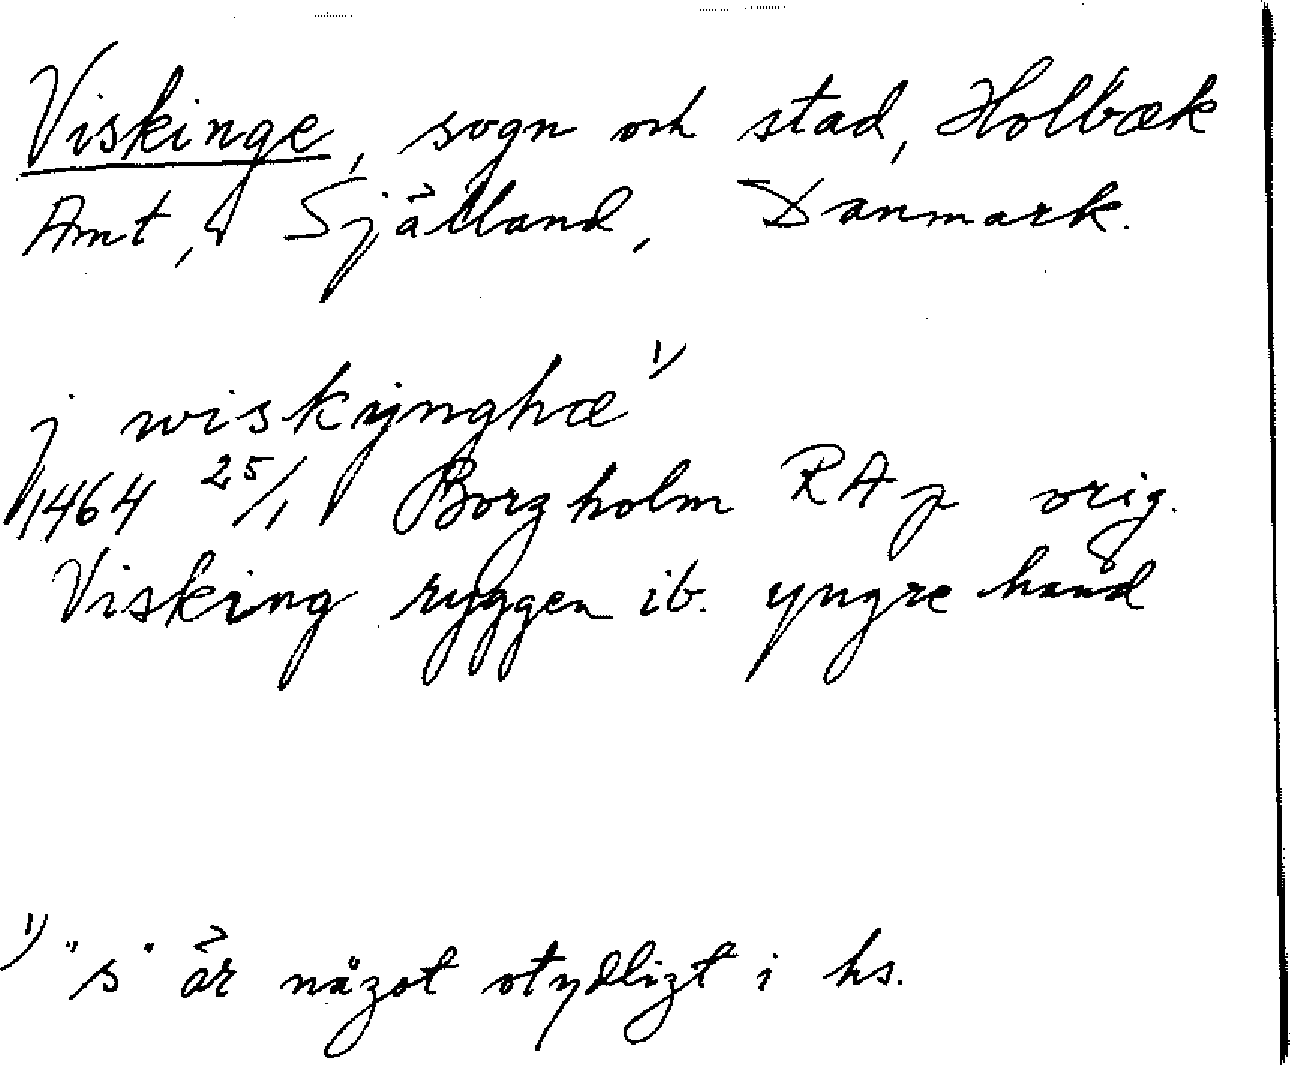 Viskinge, sogn och stad, Holbæk
Amt, Själland, Danmark.
j wiskijnghæ 1)
1464 25/1 Borgholm RA p orig.
Visking ryggen ib. yngre hand
1) "s" är något otydligt i hs.